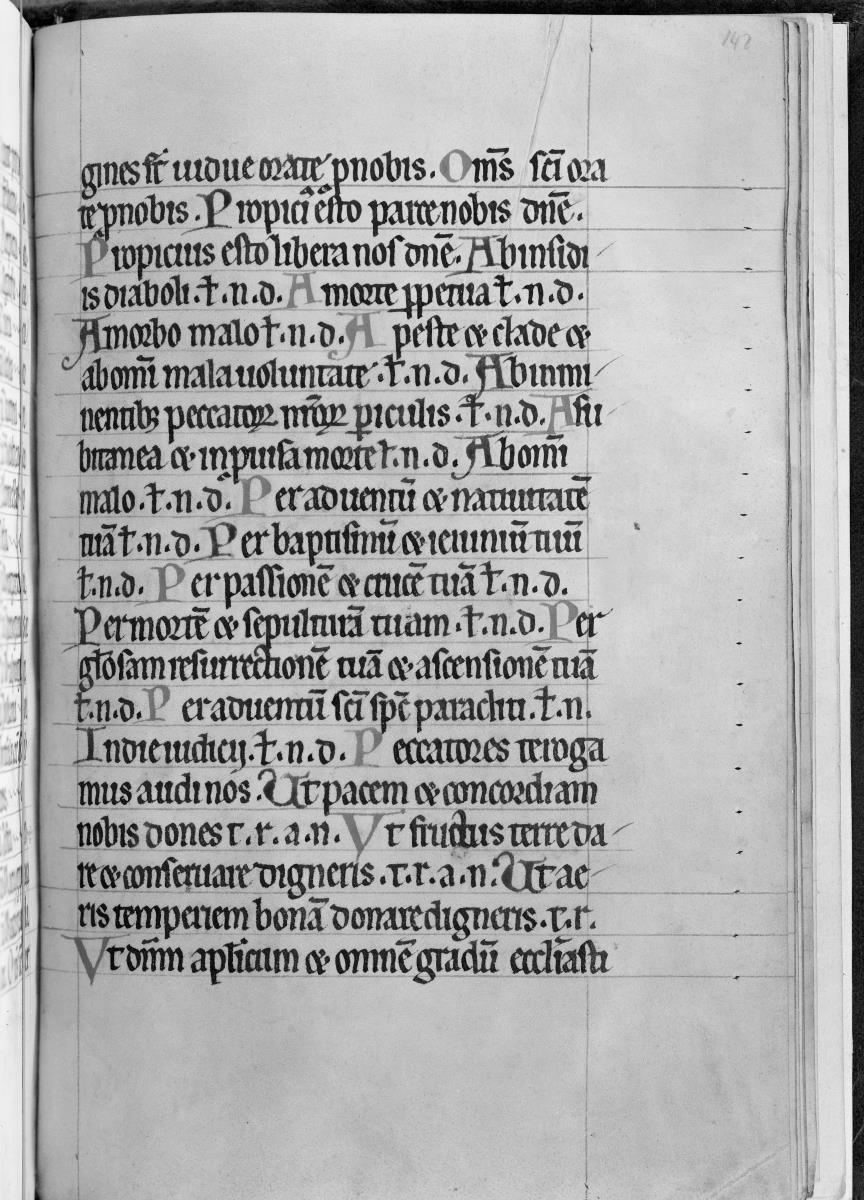 142
gines scē uidue orate pnobis. Om̄s sc̄i ora
te pnobis. Propici᷒ esto parce nobis dn̄e.
Propicius esto libera nos dn̄e. Ab insidi
is diaboli. l̄. n. d. A morte ꝑpetua l̄. n. d.
A morbo malo l̄. n. d. A peste & clade &
ab omī mala uoluntate. l̄. n. d. Ab inmi
nentibꝫ peccatoꝝ nr̄oꝝ ꝑiculis. l̄. n. d. A su
bitanea & inpuisa morte l̄. n. d. Ab omī
malo. l̄. n. d. Per aduentū & natiuitatē
tuā l̄. n. d. Per baptismū & ieiuniū tuū
l̄. n. d. Per passionē & crucē tuā l̄. n. d.
Per mortē & sepulturā tuam. l̄. n. d. Per
gl̄osam resurrectionē tuā & ascensionē tuā
l̄. n. d. Per aduentū sc̄i sp̄c paracliti. l̄. n.
In die iudicij. l̄. n. d. Peccatores te roga
mus audi nos. Ut pacem & concordiam
nobis dones t. r. a. n. Vt fructus terre da
re & conseruare digneris. t. r. a. n. Ut ae
ris temperiem bonā donare digneris. t. r.
Vt dōmn apl̄icum & omnē gradū eccl̄iasti